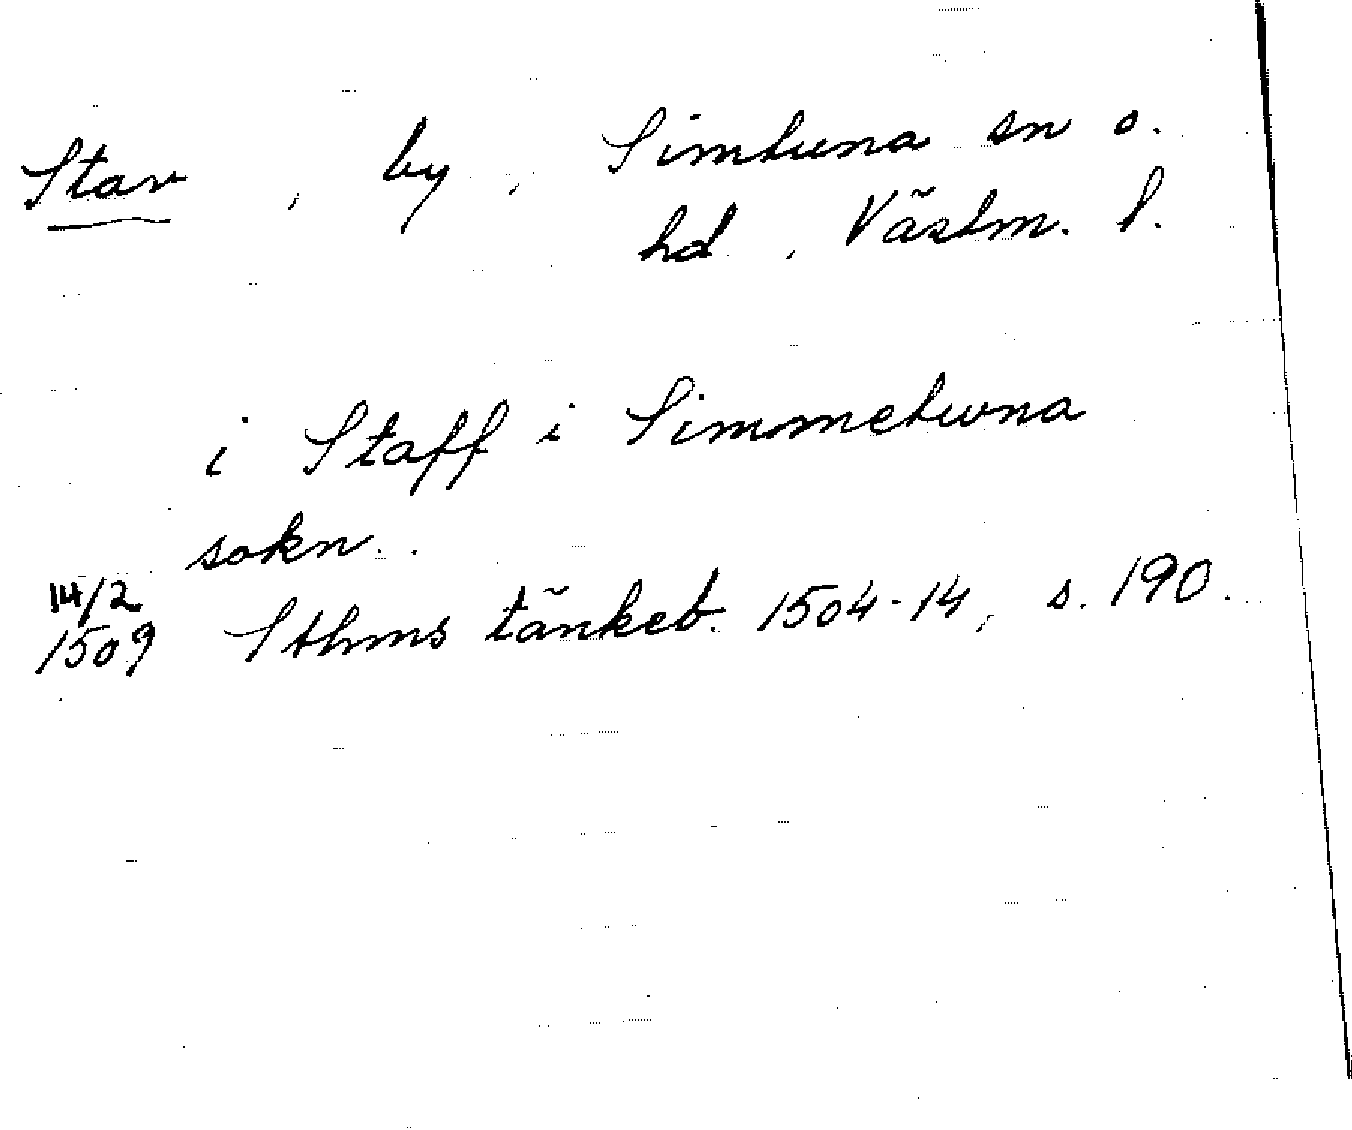 Stav, by, Simtuna sn o.
hd, Västm. l.
i Staff i Simmetuna
sokn.
14/2
1509 Sthms tänkeb. 1504-14, s. 190.